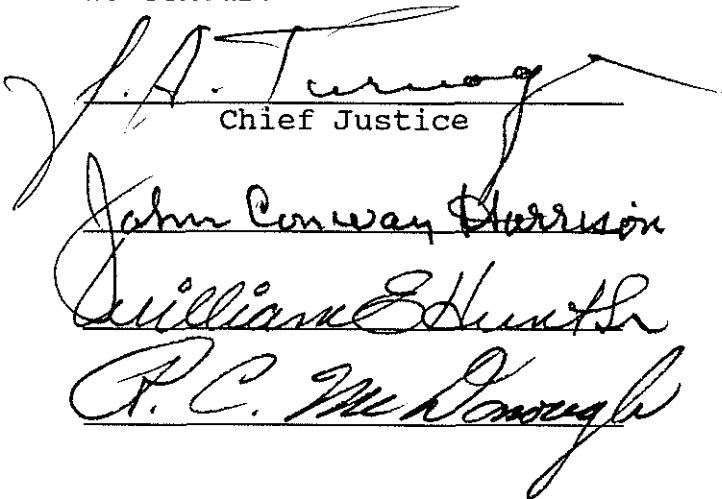 J. A. Turnage
Chief Justice
John Conway Harrison
William E Hunt Sr
R. C. McDonough